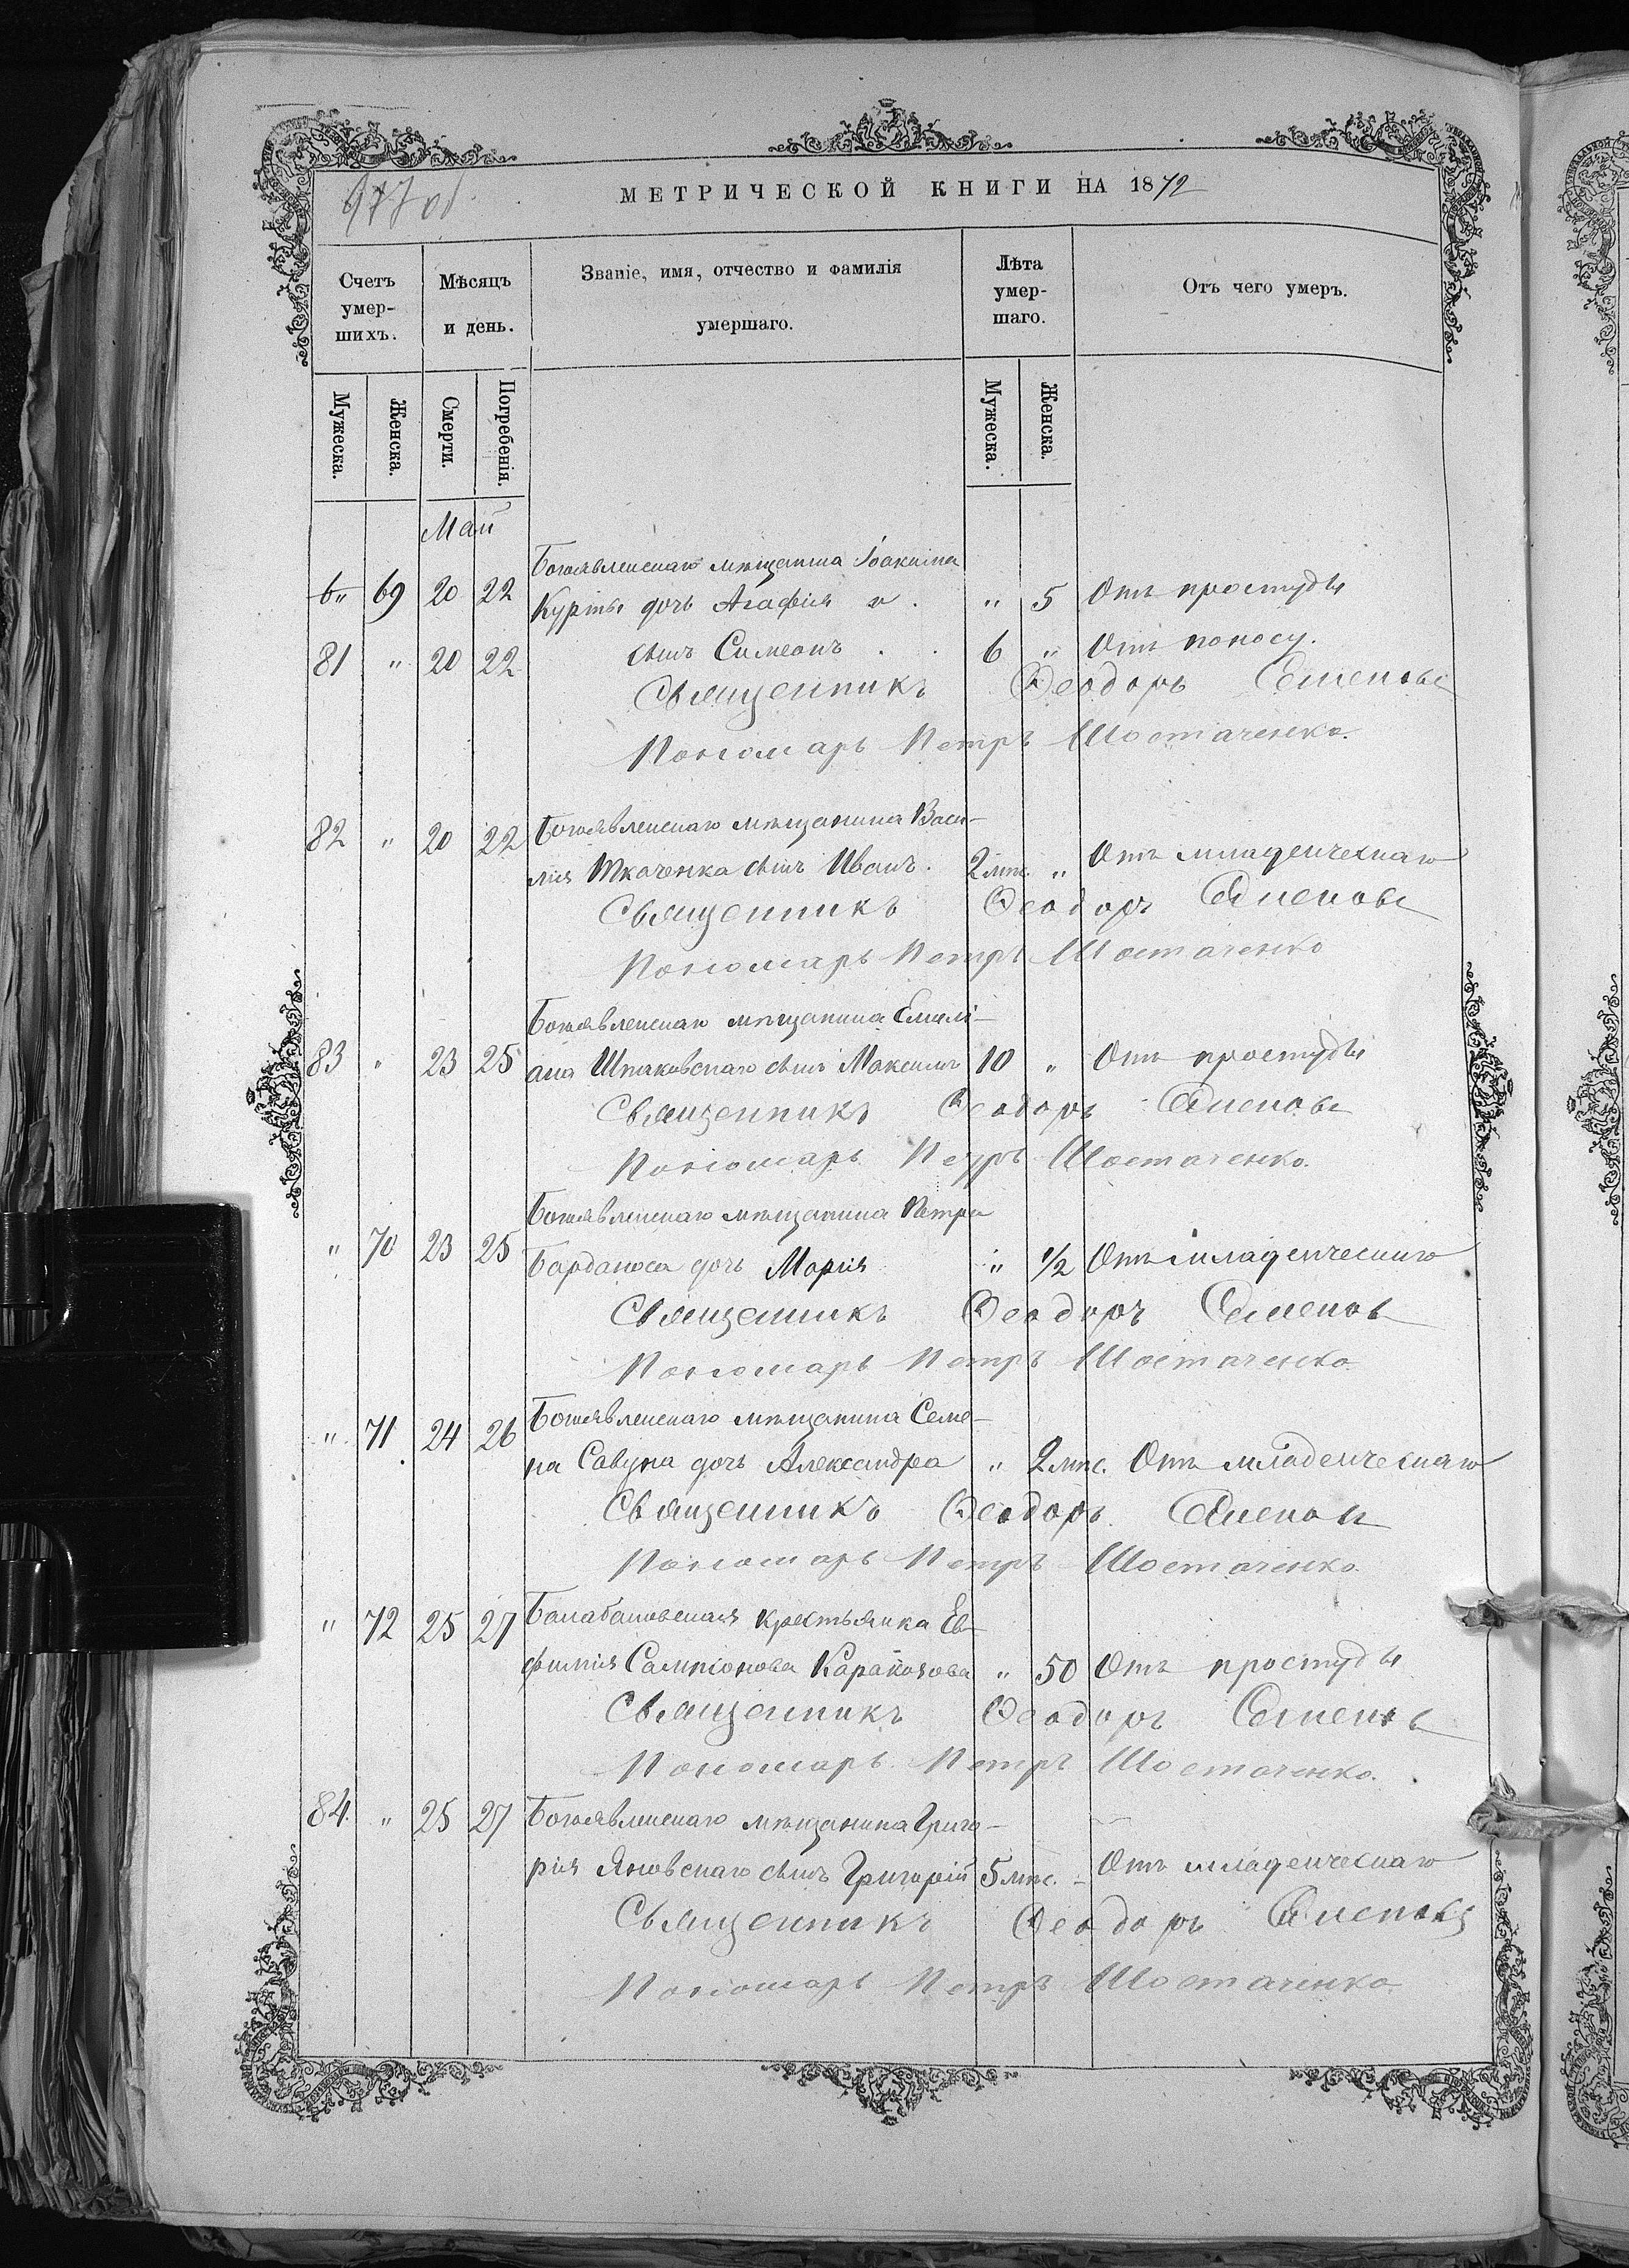 977 об
МЕТРИЧЕСКОЙ КНИГИ НА 1872
Счетъ умер-шихъ.
Мѣсяцъ и день.
Званіе, имя, отчество и фамилія умершаго.
Лѣта умер-шаго.
Отъ чего умеръ.
Мужеска. Женска. Смерти. Погребенія. Мужеска. Женска.
Май
Богоявленскаго мѣщанина Іоакима
69 20 22 Курты дочь Агафія и " 5 Отъ простуды
81 " 20 22 сынъ Симеонъ 6 " Отъ поносу.
Священникъ Ѳеодоръ Семеновъ
Пономарь Петръ Шостаченко.
82 " 20 22 Богоявленскаго мѣщанина Васи-
лія Ткаченка сынъ Иванъ. 2 мѣс. " Отъ младенческаго
Священникъ Ѳеодоръ Семеновъ
Пономарь Петръ Шостаченко
Богоявленскаго мѣщанина Емелі-
83 " 23 25 ана Шпаковскаго сынъ Максимъ 10 " Отъ простуды
Священникъ Ѳеодоръ Семеновъ
Пономарь Петръ Шостаченко.
Богоявленскаго мѣщанина Петра
" 70 23 25 Барданоса дочь Марія " 1/2 Отъ младенческаго
Священникъ Ѳеодоръ Семеновъ
Пономарь Петръ Шостаченко.
Богоявленскаго мѣщанина Семе-
" 71 24 26 на Савуна дочь Александра " 2 мѣс. Отъ младенческаго
Священникъ Ѳеодоръ Семеновъ
Пономарь Петръ Шостаченко.
" 72 25 27 Балабановская крестьянка Ев-
фимія Сампсонова Каракозова " 50 Отъ простуды
Священникъ Ѳеодоръ Семеновъ
Пономарь Петръ Шостаченко.
84. " 25 27 Богоявленскаго мѣщанина Григо-
рія Яновскаго сынъ Григорій 5 мѣс. - Отъ младенческаго
Священникъ Ѳеодоръ Семеновъ
Пономарь Петръ Шостаченко.